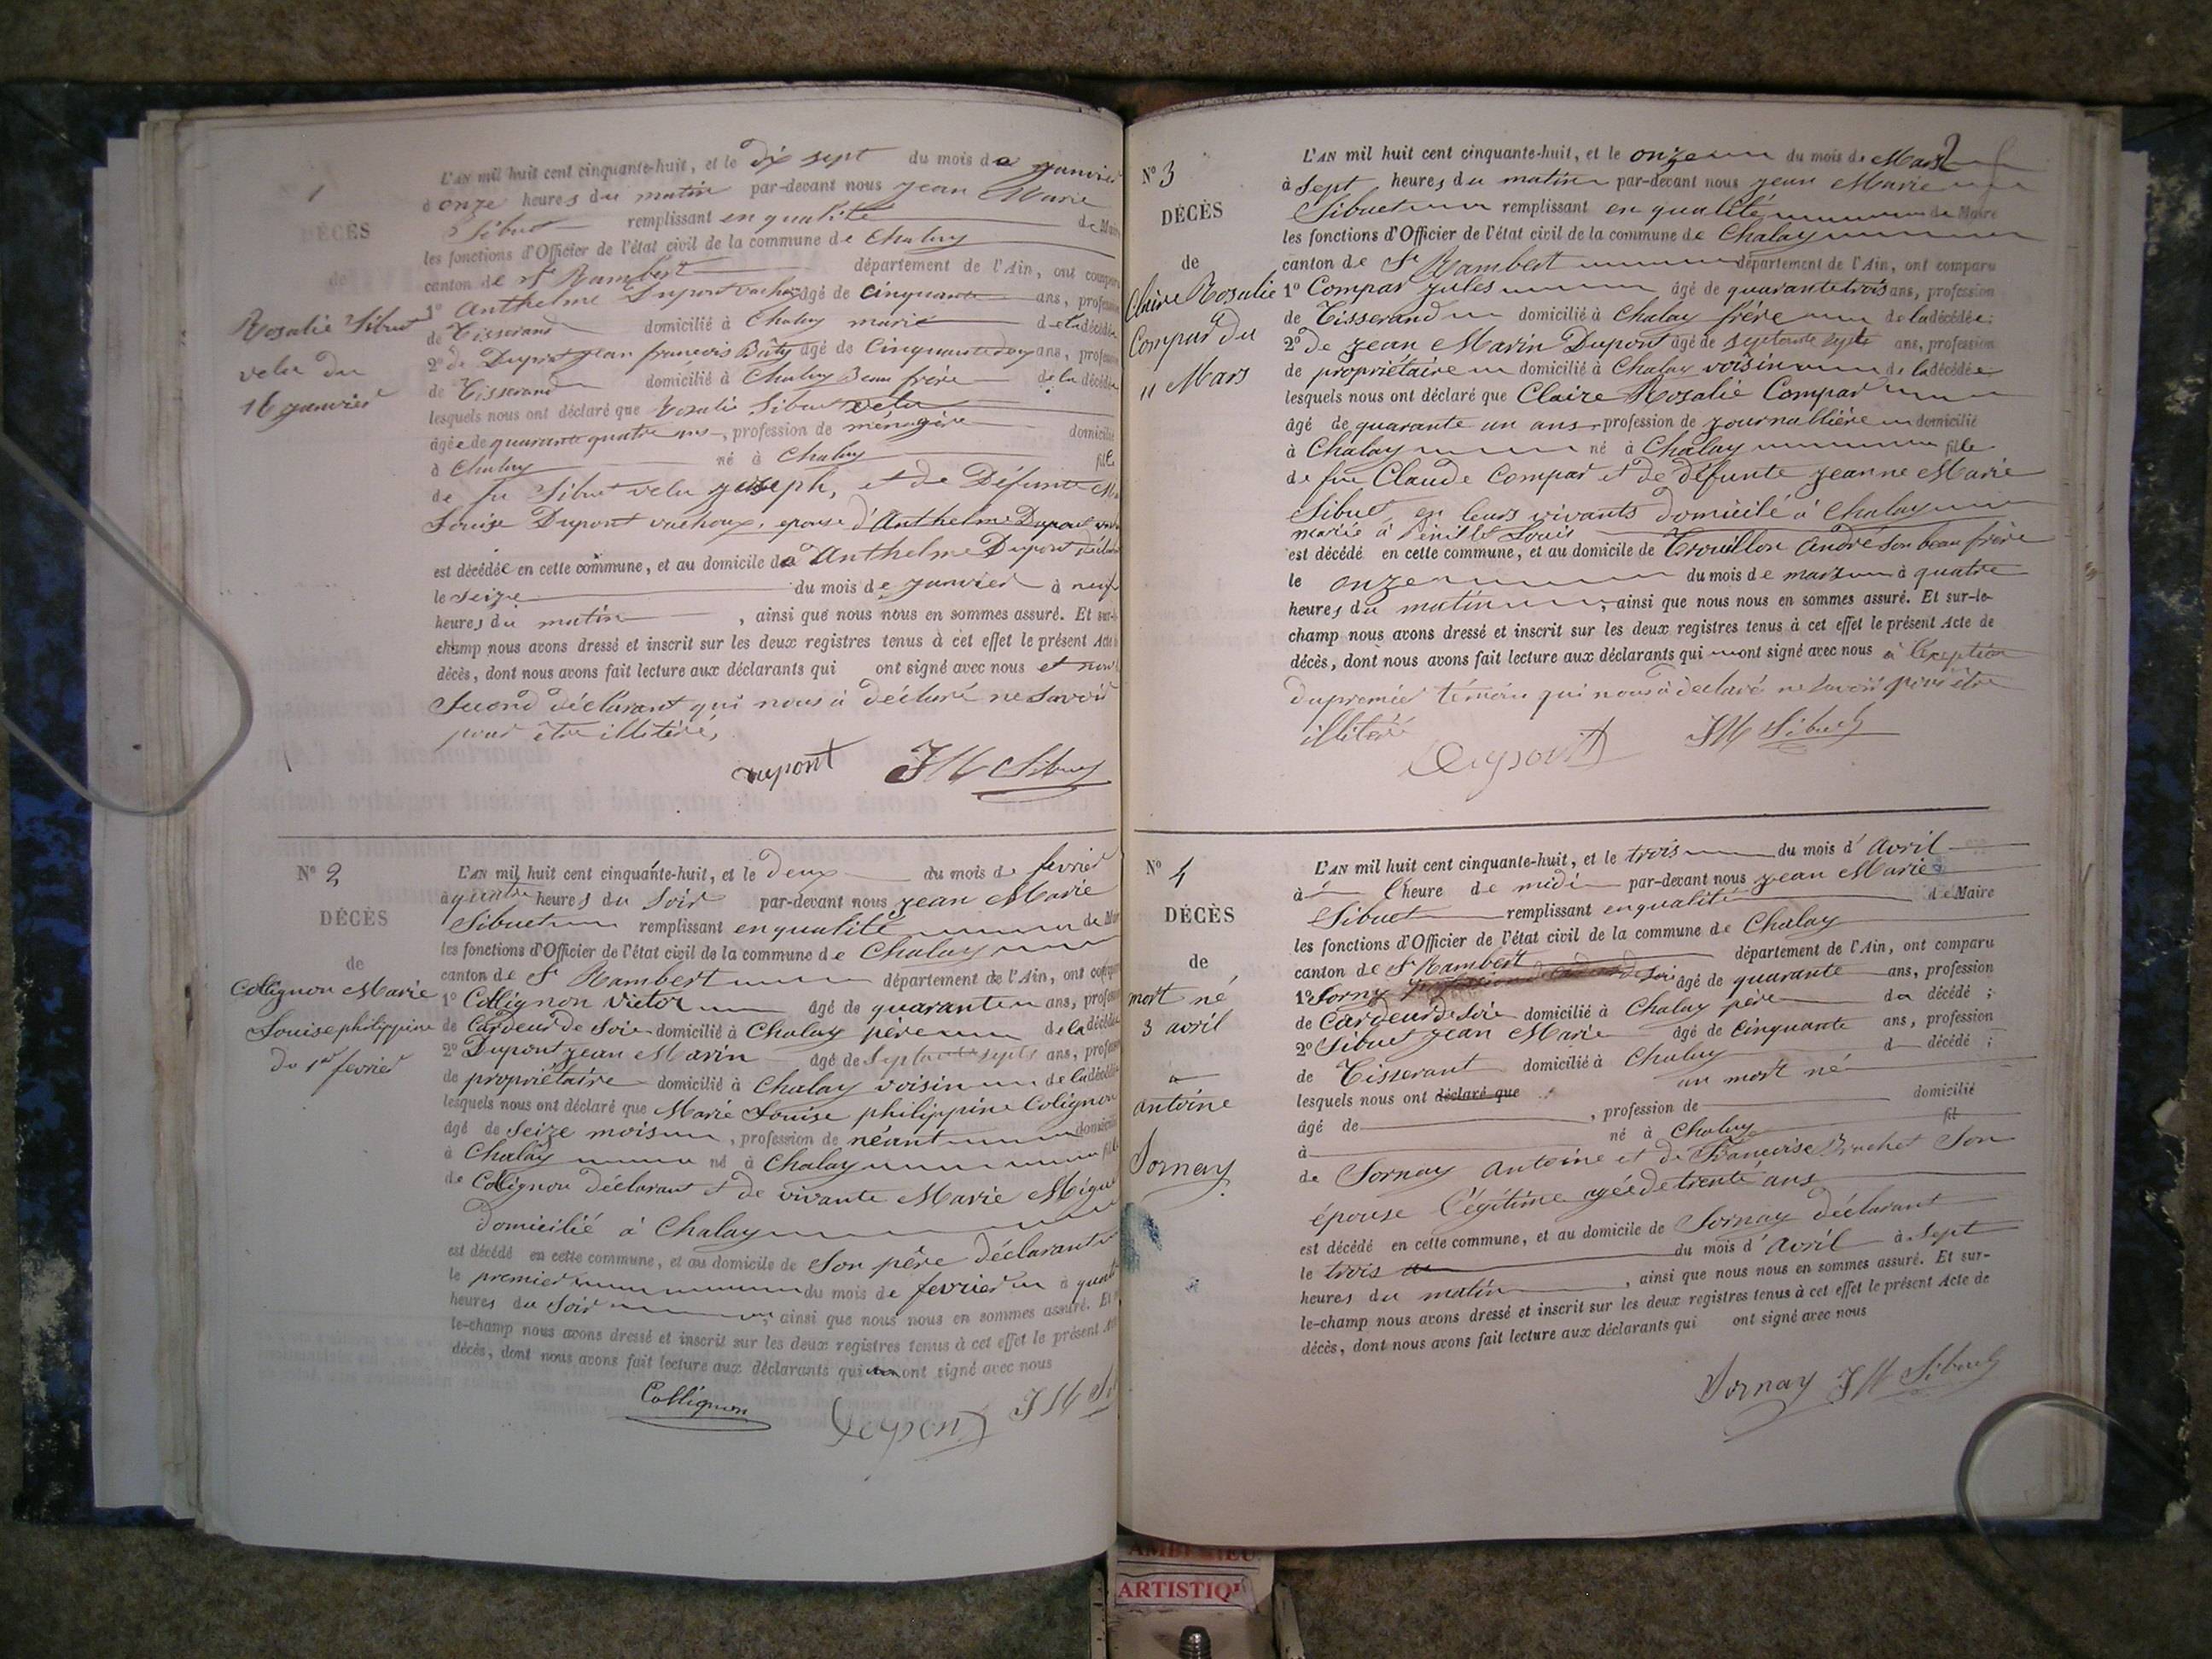 1
DÉCÈS
de
Rosalie Sibuet
velu du
16 janvier
L'AN mil huit cent cinquante-huit, et le dix sept du mois de janvier
à onze heures du matin par-devant nous Jean Marie
Sibuet remplissant en qualité de Maire
les fonctions d'Officier de l'état civil de la commune de Chaley
canton de St Rambert département de l'Ain, ont comparu
1° Anthelme Dupont vachoux âgé de cinquante ans, profession
de Tisserand domicilié à Chaley marié de la décédée
2° de Dupont Jean francois Bâty âgé de Cinquante deux ans, profession
de Tisserand domicilié à Chaley Beau frère de la décédée
lesquels nous ont déclaré que Rosalie Sibuet velu
âgée de quarante quatre ans, profession de ménagère domicilié
à Chaley né à Chaley fille
de fu Sibuet velu joseph, et de Défunte
Louise Dupont vachoux, epouse d'Anthelme Dupont
est décédée en cette commune, et au domicile de Anthelme Dupont
le seize du mois de janvier à neuf
heures du matin, ainsi que nous nous en sommes assuré. Et sur-le-
champ nous avons dressé et inscrit sur les deux registres tenus à cet effet le présent Acte
décès, dont nous avons fait lecture aux déclarants qui ont signé avec nous et non
Second déclarant qui nous à déclaré ne savoir
pour être illitéré,
Dupont JM Sibuet
N° 2
DÉCÈS
de
Collignon Marie
Louise philippine
du 1er fevrier
L'AN mil huit cent cinquante-huit, et le Deux du mois de fevrier
à quatre heures du Soir par-devant nous Jean Marie
Sibuet remplissant en qualité de
les fonctions d'Officier de l'état civil de la commune de Chaley
canton de St Rambert département de l'Ain, ont comparu
1° Collignon Victor âgé de quarante ans, profession
de Cardeur de Soie domicilié à Chaley père de la décédée
2° Dupont Jean Marin âgé de Septante sept ans, profession
de propriétaire domicilié à Chaley voisin de la décédée
lesquels nous ont déclaré que Marie Louise philippine Colignon
âgé de Seize mois, profession de néant domicilié
à Chaley né à Chaley fille
de Collignon déclarant et de vivante Marie
domicilié à Chaley
est décédé en cette commune, et au domicile de Son père déclarant
le premier du mois de fevrier à quatre
heures du Soir, ainsi que nous nous en sommes assuré. Et
le-champ nous avons dressé et inscrit sur les deux registres tenus à cet effet le présent
décès, dont nous avons fait lecture aux déclarants qui ont signé avec nous
Collignon Dupont JM
2
N° 3
DÉCÈS
de
Claire Rosalie
Compar du
11 Mars
L'AN mil huit cent cinquante-huit, et le onze du mois de Mars
à Sept heures du matin par-devant nous Jean Marie
Sibuet remplissant en qualité de Maire
les fonctions d'Officier de l'état civil de la commune de Chaley
canton de St Rambert département de l'Ain, ont comparu
1° Compar Jules âgé de quarante trois ans, profession
de Tisserand domicilié à Chaley frère de la décédée;
2° de Jean Marin Dupont âgé de septante sept ans, profession
de propriétaire domicilié à Chaley voisin de la décédée
lesquels nous ont déclaré que Claire Rosalie Compar
âgé de quarante un ans profession de journallière domicilié
à Chaley né à Chaley fille
de fu Claude Compar et de défunte Jeanne Marie
Sibuet en leurs vivants domicilé à Chaley
mariée à Louis
est décédé en cette commune, et au domicile de Trouillon André son beau frère
le onze du mois de mars à quatre
heures du matin, ainsi que nous nous en sommes assuré. Et sur-le-
champ nous avons dressé et inscrit sur les deux registres tenus à cet effet le présent Acte de
décès, dont nous avons fait lecture aux déclarants qui ont signé avec nous à l'exeption
du premier témoin qui nous à déclaré ne savoir être
illitéré
Dupont JM Sibuet
N° 4
DÉCÈS
de
mort né
3 avril
a
antoine
Sornay
L'AN mil huit cent cinquante-huit, et le trois du mois d'Avril
à l'heure de midi par-devant nous Jean Marie
Sibuet remplissant en qualité de Maire
les fonctions d'Officier de l'état civil de la commune de Chaley
canton de St Rambert département de l'Ain, ont comparu
1° Sorny âgé de quarante ans, profession
de Cardeur de Soie domicilié à Chaley père du décédé;
2° Sibuet Jean Marie âgé de Cinquante ans, profession
de Tisserant domicilié à Chaley d décédé;
lesquels nous ont déclaré que un mort né
âgé de, profession de domicilié
à né à Chaley fil
de Sornay Antoine et de Francoise Brachet Son
épouse légitime agée de trente ans
est décédé en cette commune, et au domicile de Sornay déclarant
le trois du mois d'Avril à Sept
heures du matin, ainsi que nous nous en sommes assuré. Et sur-
le-champ nous avons dressé et inscrit sur les deux registres tenus à cet effet le présent Acte de
décès, dont nous avons fait lecture aux déclarants qui ont signé avec nous
Sornay JM Sibuet
ARTISTIQ